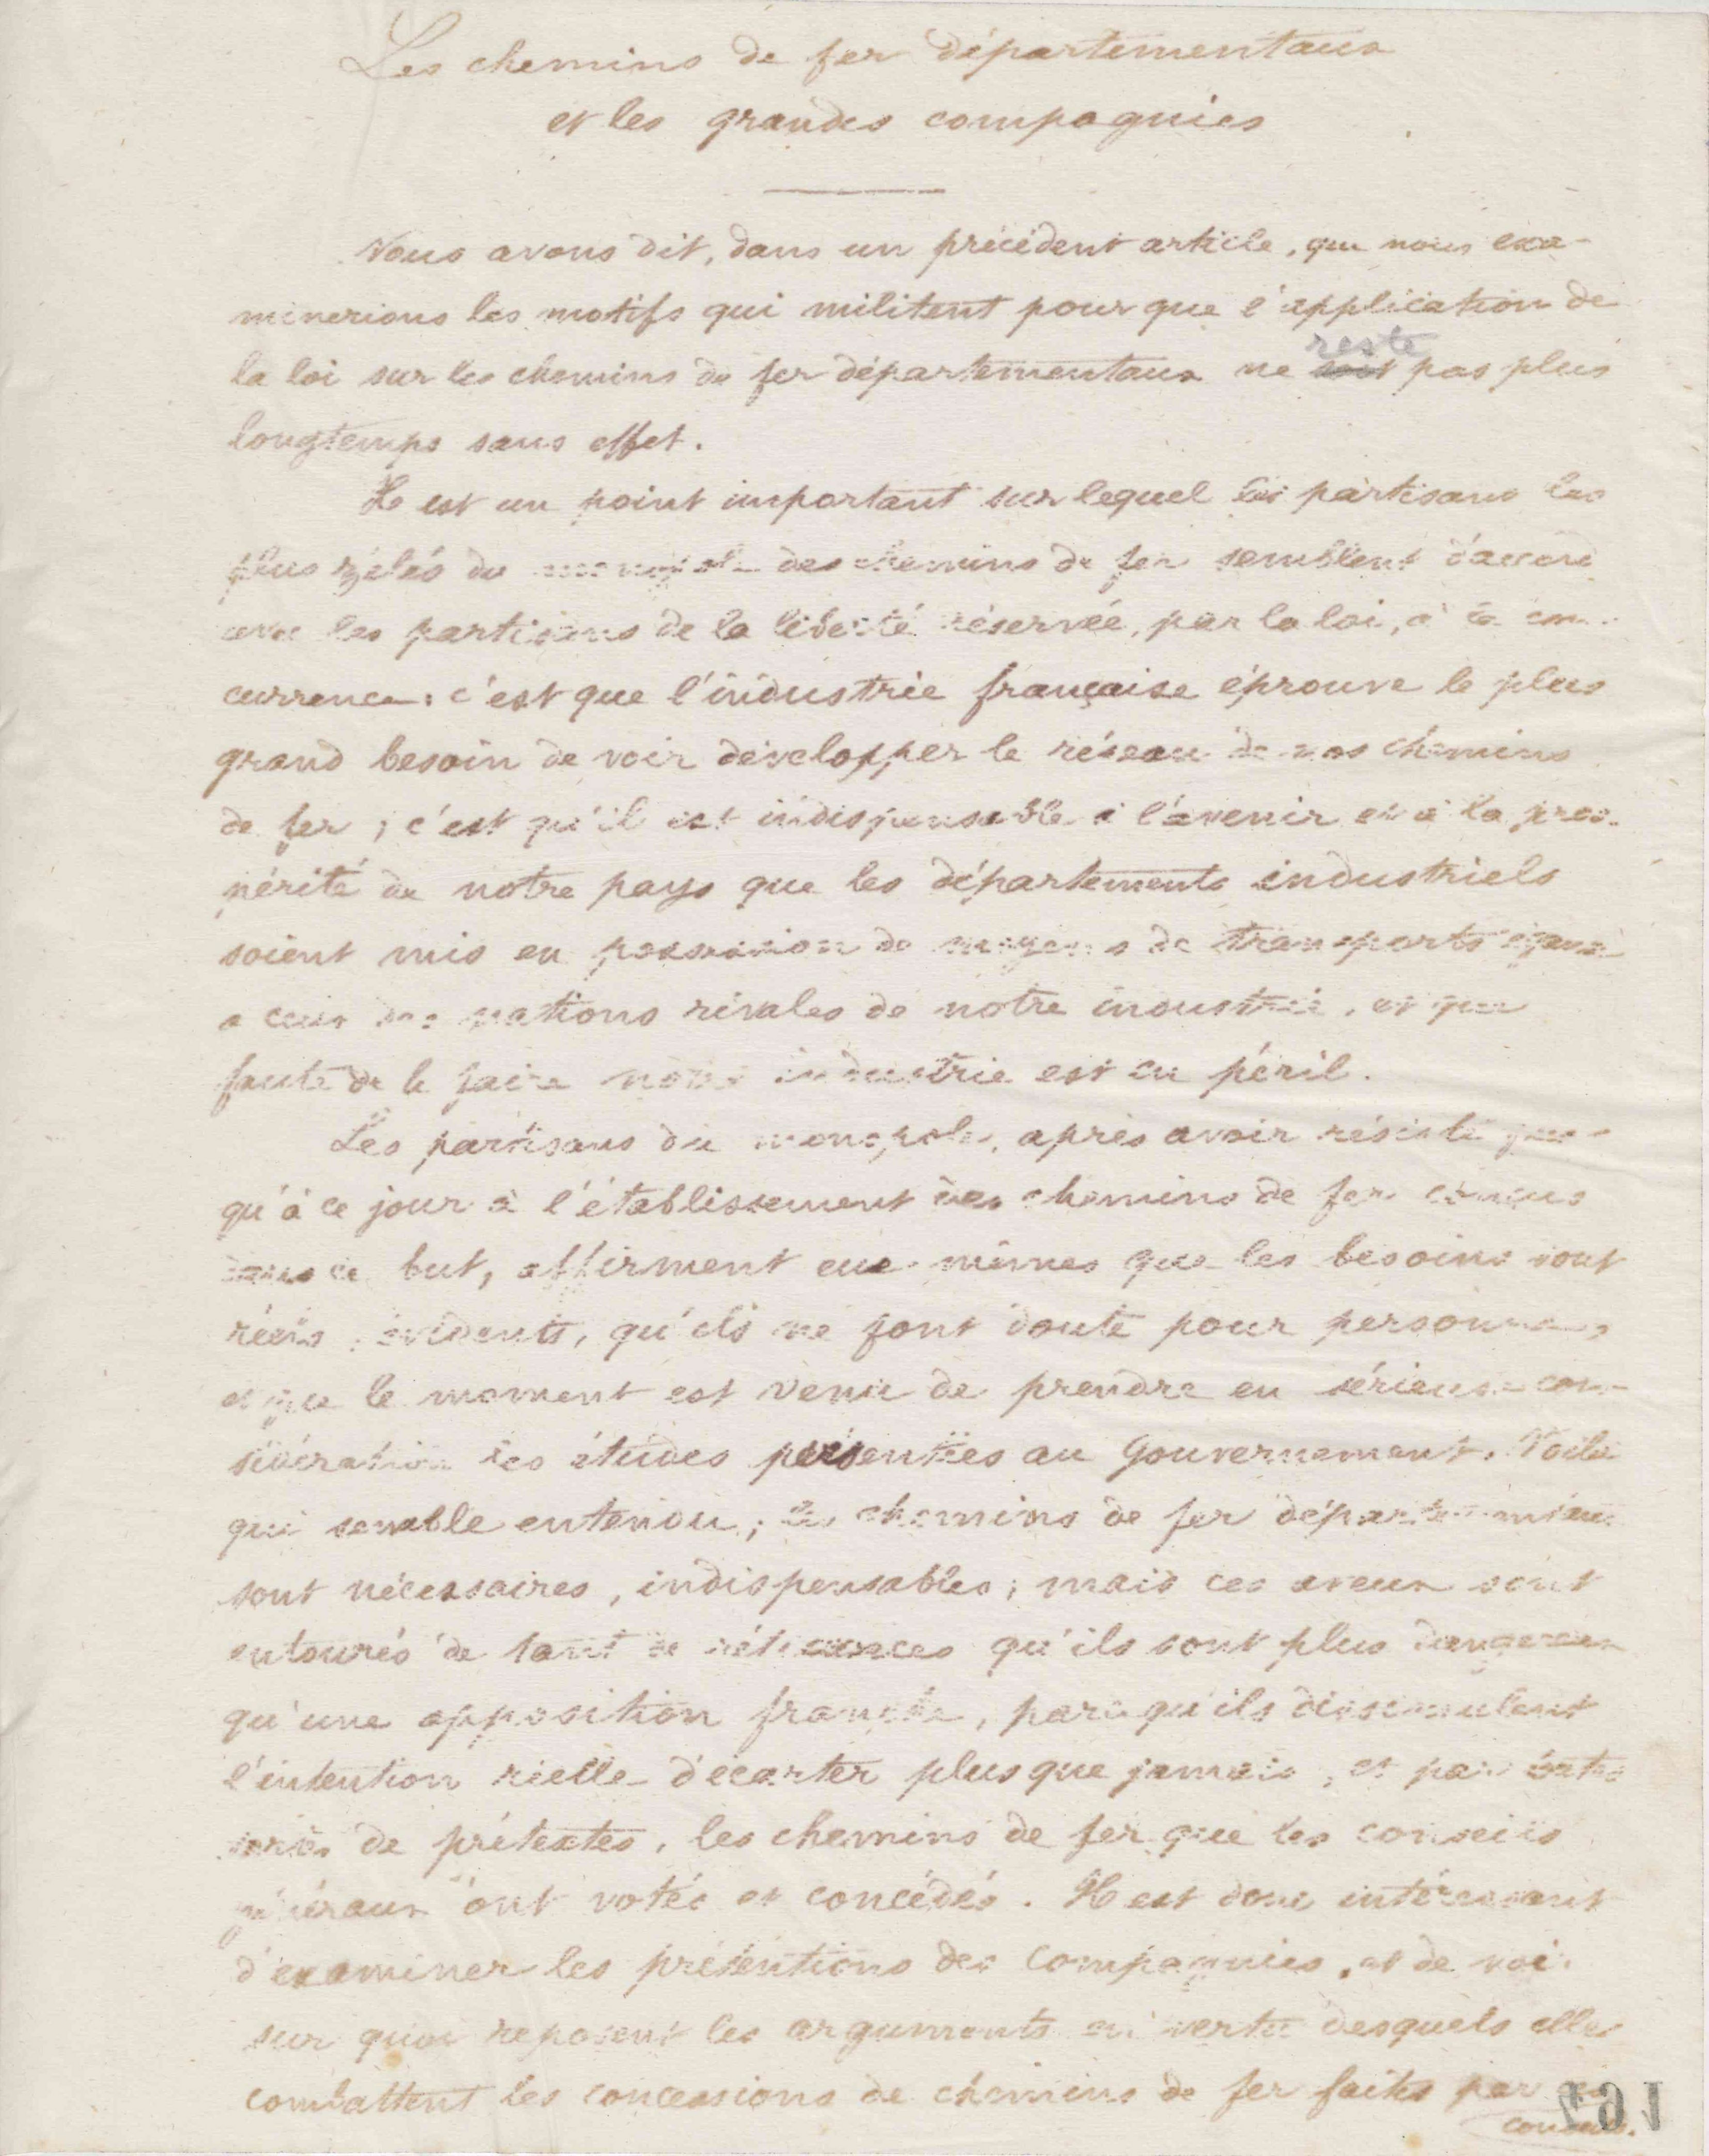 Les chemins de fer départementaux
et les grandes compagnies
Nous avons dit, dans un précédent article, que nous exa-
minerions les motifs qui militent pour que l'application de
la loi sur les chemins de fer départementaux ne reste pas plus
longtemps sans effet.
Il est un point important sur lequel les partisans les
plus zélés du monopole des chemins de fer semblent d'accord
avec les partisans de la liberté réservée, par la loi, à la con-
currence: c'est que l'industrie française éprouve le plus
grand besoin de voir développer le réseau de nos chemins
de fer; c'est qu'il est indispensable à l'avenir et à la pros-
périté de notre pays que les départements industriels
soient mis en possession de moyens de transports égaux
a ceux des nations rivales de notre industrie, et que
faute de le faire notre industrie est en péril.
Les partisans du monopole, après avoir résisté jus-
qu'à ce jour à l'établissement des chemins de fer conçus
dans ce but, affirment eux-mêmes que les besoins sont
réels, évidents, qu'ils ne font doute pour personne,
et que le moment est venu de prendre en sérieuse con-
sidération les études présentées au Gouvernement. Voilà
qui semble entendu; les chemins de fer départementaux
sont nécessaires, indispensables; mais ces aveux sont
entourés de tant de réticences qu'ils sont plus dangereux
qu'une opposition franche, parcequ'ils dissimulent
l'intention réelle d'écarter plus que jamais, et par toutes
sortes de prétextes, les chemins de fer que les conseils
généraux ont votés et concédés. Il est donc intéressant
d'examiner les prétentions des Compagnies, et de voir
sur quoi reposent les arguments en vertu desquels elles
combattent les concessions de chemins de fer faites par les
conseils.